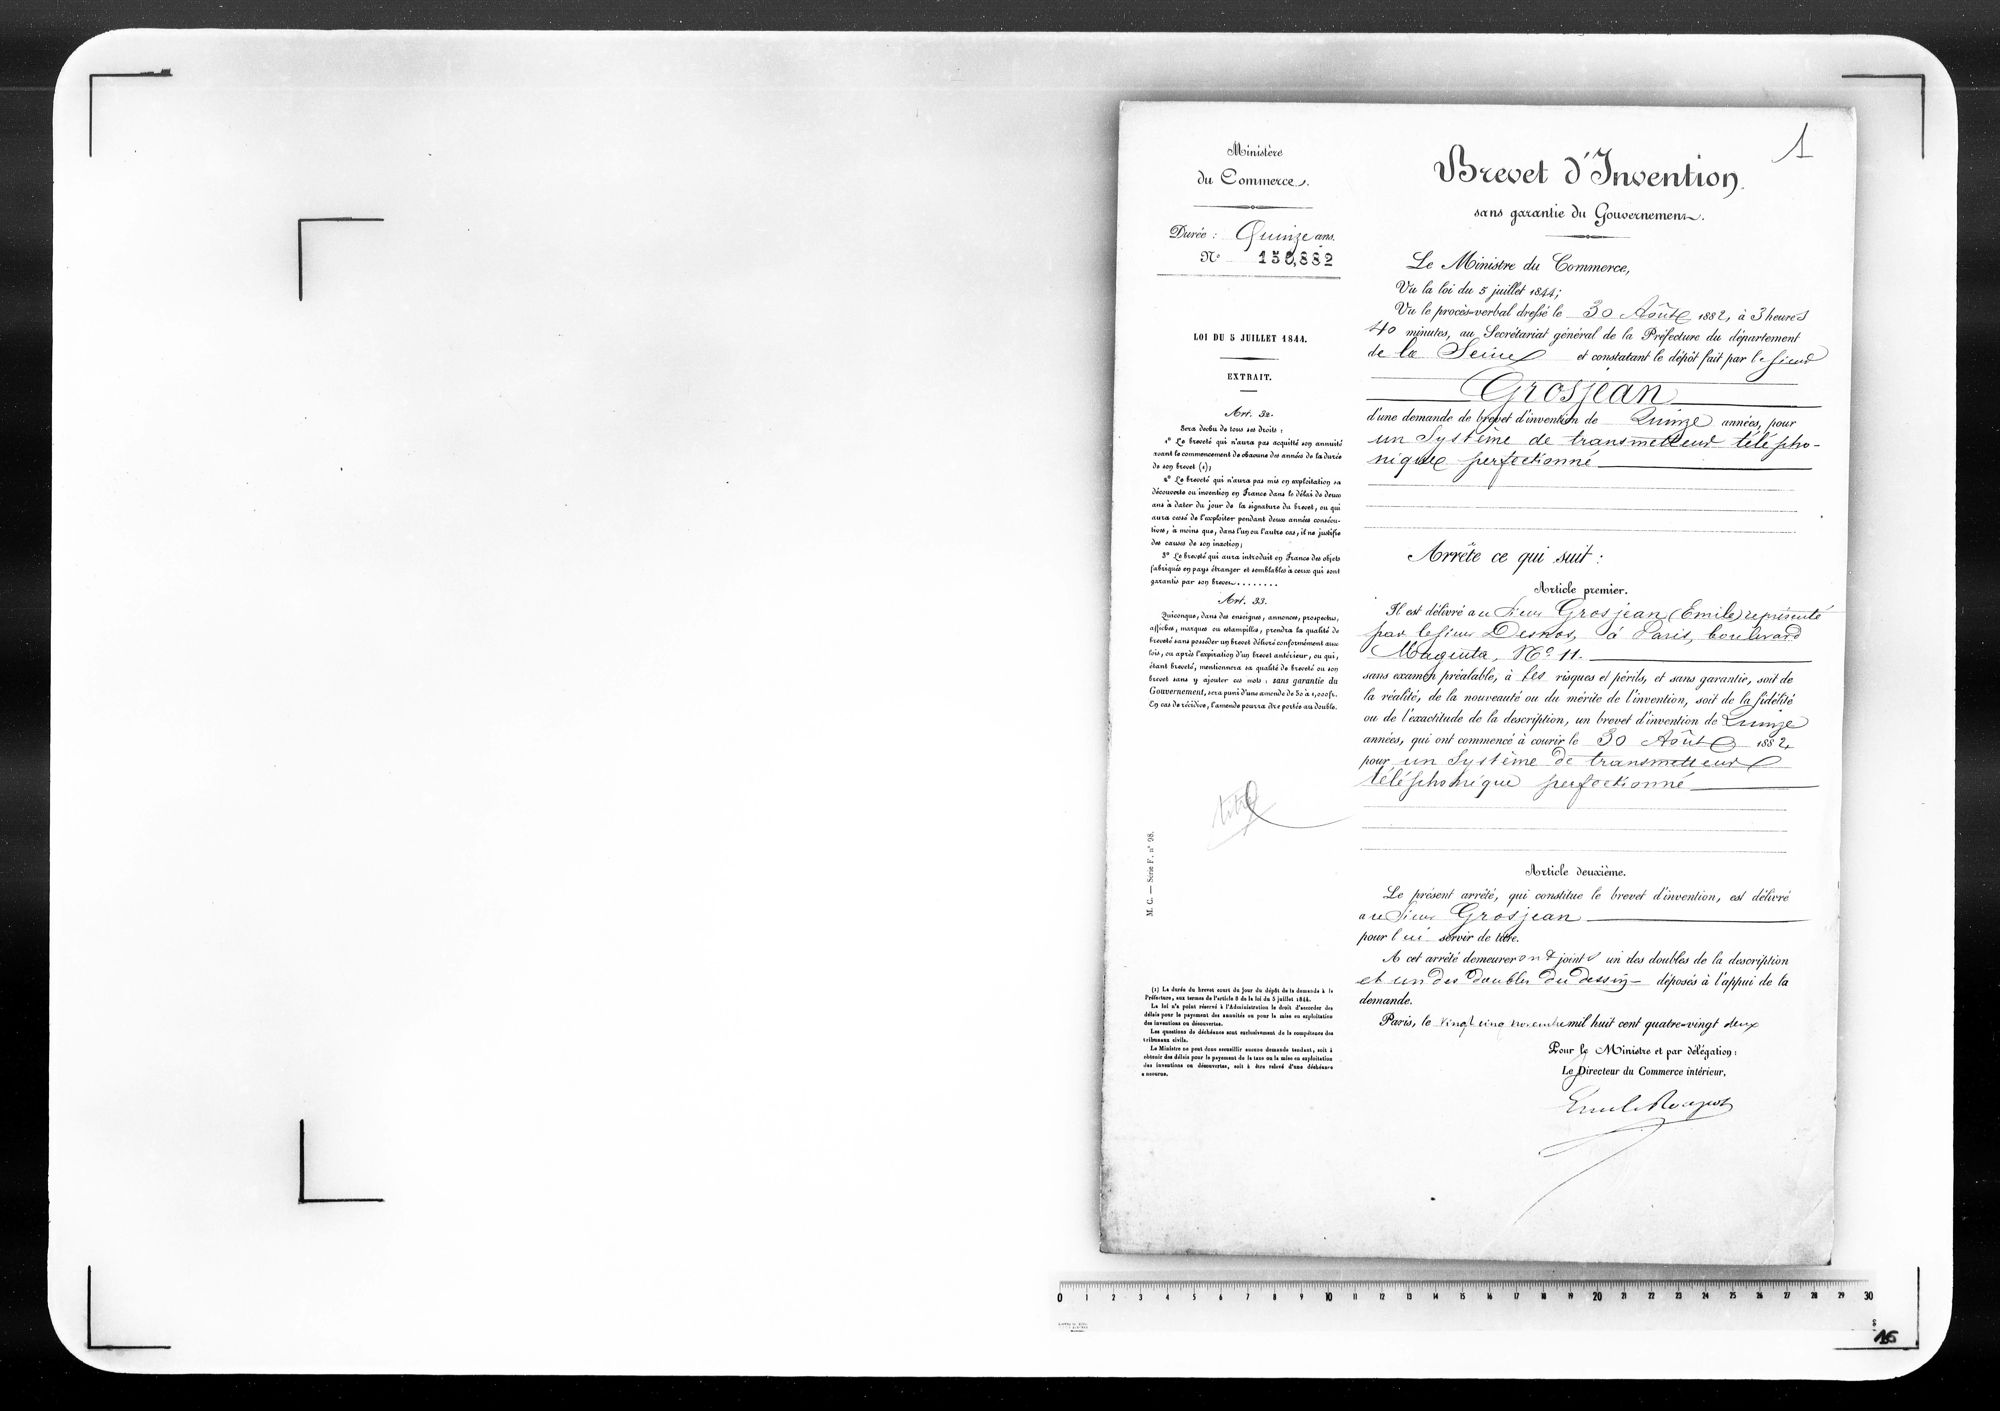 Ministère
du Commerce.
Durée : Quinze ans.
N° 150,882
LOI DU 5 JUILLET 1844.
EXTRAIT.
Art. 32.
Sera déchu de tous ses droits :
1° Le breveté qui n'aura pas acquitté son annuité
avant le commencement de chacune des années de la durée
de son brevet (1);
2° Le breveté qui n'aura pas mis en exploitation sa
découverte ou invention en France dans le délai de deux
ans à dater du jour de la signature du brevet, ou qui
aura cessé de l'exploiter pendant deux années consécu-
tives, à moins que, dans l'un ou l'autre cas, il ne justifie
des causes de son inaction;
3° Le breveté qui aura introduit en France des objets
fabriqués en pays étranger et semblables à ceux qui sont
garantis par son brevet........
Art. 33.
Quiconque, dans des enseignes, annonces, prospectus,
affiches, marques ou estampilles, prendra la qualité de
breveté sans posséder un brevet délivré conformément aux
lois, ou après l'expiration d'un brevet antérieur, ou qui,
étant breveté, mentionnera sa qualité de breveté ou son
brevet sans y ajouter ces mots : sans garantie du
Gouvernement, sera puni d'une amende de 50 à 1,000 fr.
En cas de récidive, l'amende pourra être portée au double.
titre
M. C. — Série F, n° 98.
(1) La durée du brevet court du jour du dépôt de la demande à la
Préfecture, aux termes de l'article 8 de la loi du 5 juillet 1844.
La loi n'a point réservé à l'Administration le droit d'accorder des
délais pour le payement des annuités ou pour la mise en exploitation
des inventions ou découvertes.
Les questions de déchéance sont exclusivement de la compétence des
tribunaux civils.
Le Ministre ne peut donc accueillir aucune demande tendant, soit à
obtenir des délais pour le payement de la taxe ou la mise en exploitation
des inventions ou découvertes, soit à être relevé d'une déchéance
encourue.
1
Brevet d'Invention
sans garantie du Gouvernement.
Le Ministre du Commerce,
Vu la loi du 5 juillet 1844;
Vu le procès-verbal dressé le 30 Août 1882, à 3 heures
40 minutes, au Secrétariat général de la Préfecture du département
de la Seine et constatant le dépôt fait par le Sieur
Grosjean
d'une demande de brevet d'invention de Quinze années, pour
un Système de transmetteur télépho-
nique perfectionné
Arrête ce qui suit :
Article premier.
Il est délivré au Sieur Grosjean (Emile) représenté
par le Sieur Desnos, à Paris, boulevard
Magenta, N° 11.
sans examen préalable, à ses risques et périls, et sans garantie, soit de
la réalité, de la nouveauté ou du mérite de l'invention, soit de la fidélité
ou de l'exactitude de la description, un brevet d'invention de Quinze
années, qui ont commencé à courir le 30 Août 1882,
pour un Système de transmetteur
téléphonique perfectionné
Article deuxième.
Le présent arrêté, qui constitue le brevet d'invention, est délivré
au Sieur Grosjean
pour lui servir de titre.
A cet arrêté demeureront joints un des doubles de la description
et un des doubles du dessin déposés à l'appui de la
demande.
Paris, le vingt cinq novembre mil huit cent quatre-vingt deux
Pour le Ministre et par délégation :
Le Directeur du Commerce intérieur,
0 1 2 3 4 5 6 7 8 9 10 11 12 13 14 15 16 17 18 19 20 21 22 23 24 25 26 27 28 29 30
16